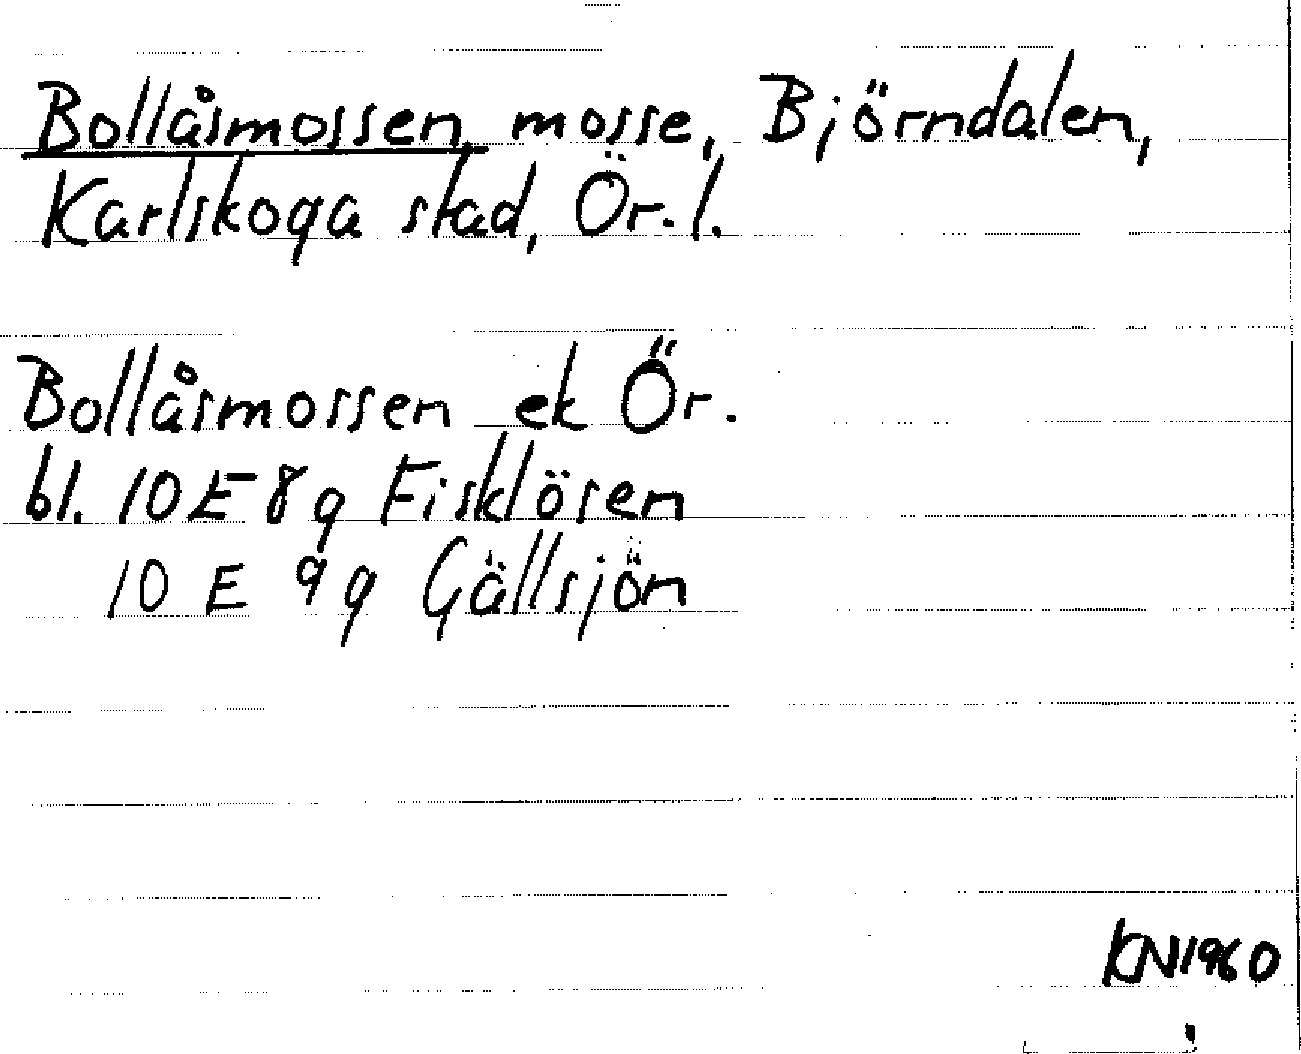 Bollåsmossen, mosse, Björndalen,
Karlskoga stad, Ör. l.
Bollåsmossen ek Ör.
bl. 10 E 8 g Fisklösen
10 E 9 g Gällsjön
KN1960